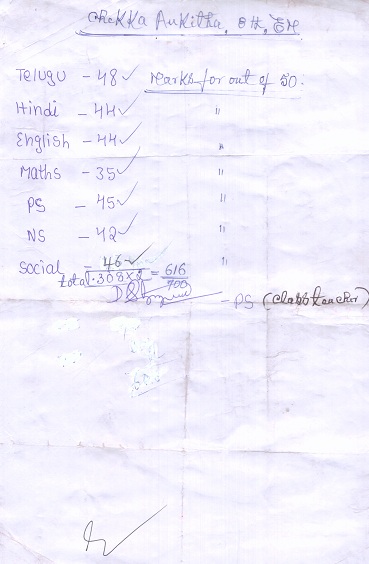 CheKKa Ankitha, 8th, EM
Telugu - 48✓ Marks for out of 50.
Hindi - 44✓ "
English - 44✓ "
Maths - 35✓ "
PS - 45✓ "
NS - 42✓ "
social - 46✓ "
total 308×2 = 616/700
- PS (class teacher)